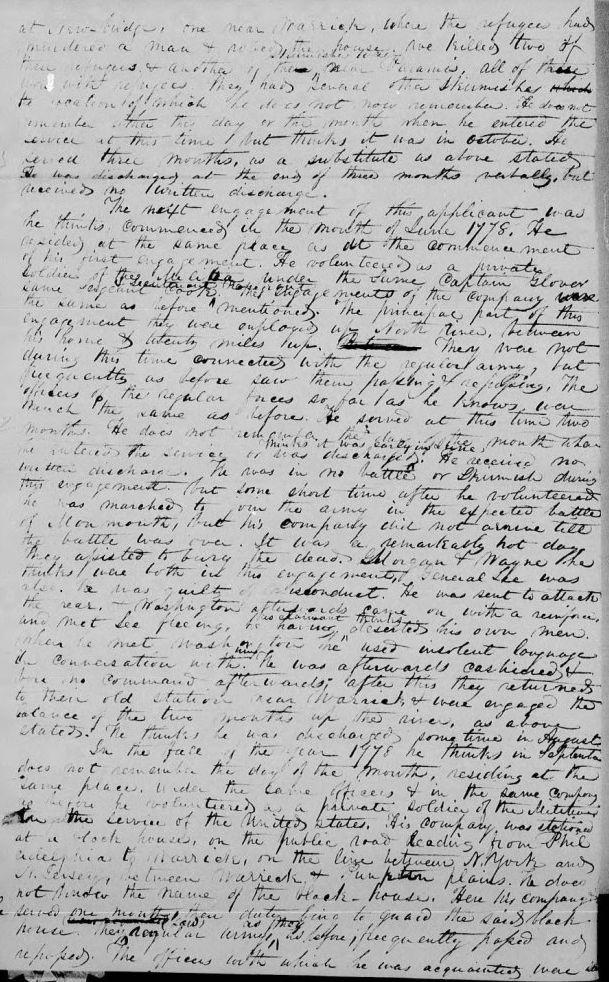 at New-bridge, one near Warrick, where the refugees had
murdered a man & robed the house, we killed two of
the refugees & another of the Skirmishes was near Paramis, all of these
was with refugees. they had several other Skirmishes which
the location of which he does not now remember. He does not
remember either the day or the month when he entered the
service at this time, but thinks it was in October. He
served three months, as a substitute as above stated
He was discharged at the end of three months verbally, but
received no written discharge.
The next engagement of this applicant was
he thinks commenced in the month of June 1778. He
resided at the same place as at the commencement
of his first engagement. He volunteered as a private
soldier of the Militia under the same Captain Glover
same sergeant & lieutenant the engagements of the company were
the same as before mentioned, the principal part of this
engagement they were employed up North river, between
his home & twenty miles up. They were not
during this time connected with the regular army, but
frequently as before saw them passing & repassing. The
officers of the regular forces so far as he knows, were
much the same as before. He served at this time two
months. He does not remember the day of the month when
thinks it was early in June
he entered the service or was discharged. He received no
written discharge. He was in no battle or Skirmish during
this engagement. but some short time after he volunteered
he was marched to join the army in the expected battle
of Monmouth, but his company did not arrive till
the battle was over. It was a remarkably hot day
they assisted to bury the dead. Morgan & Wayne he
thinks were both in this engagement, General Lee was
also. he was guilty of misconduct. He was sent to attack
the rear, & Washington afterwards came on with a reinforce,
and met Lee fleeing, he having as claimant thinks deserted his own men.
when he met Washington he used insolent language
in conversation with him he was afterwards cashiered &
bore no command afterwards, after this they returned
to their old station near Warrick & were engaged the
balance of the two months up the river, as above
stated. He thinks he was discharged sometime in August
In the fall of the year 1778 he thinks in September
does not remember the day of the month, residing at the
same place. under the same officers & in the same company
as before he volunteered as a private soldier of the Militia
in the service of the United States. His company was stationed
at a block house, on the public road leading from Phil
adelphia to Warrick, on the line between N. York and
N. Jersey, between Warrick & Pumpton plains. he does
not know the name of the block-house. Here his company
served one month, their duty being to guard the said block
house. They saw the regular army, as before, as they frequently passed and
repassed. The officers with which he was acquainted were